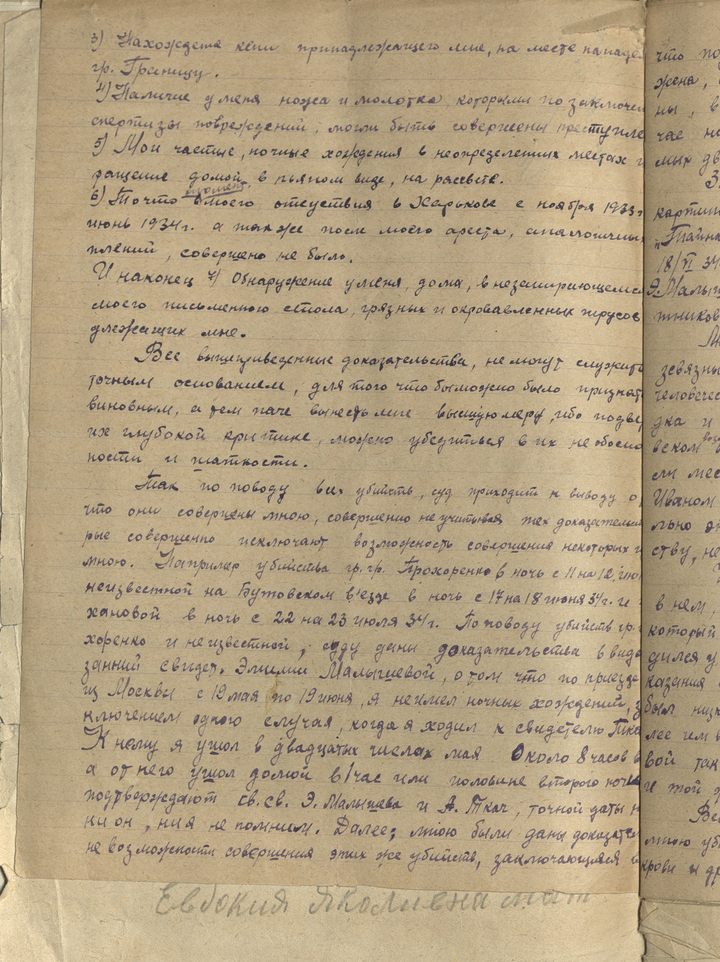 3) Нахождение кепи принадлежащего мне, на месте нападе
гр. Греницу.
4) Наличие у меня ножа и молотка которыми по заключен
спертизы повреждений, могли быть совершены преступле
5) Мои частые, ночные хождения в неопределенных местах и
ращение домой, в пьяном виде, на рассвете.
6) То что в момент моего отсутствия в Харькове с ноября 1933г
июнь 1934г. а также после моего ареста, аналогичных
плений, совершено не было.
И наконец 7) Обнаружение у меня, дома, в незапирающемся
моего письменного стола, грязных и окровавленных трусов
длежащих мне.
Все вышеприведенные доказательства, не могут служить
точным основанием, для того что бы можно было признат
виновным, а тем паче вынесть мне высшую меру, ибо подве
их глубокой критике, можно убедиться в их не обосно
ности и шаткости.
Так по поводу всех убийств, суд приходит к выводу о
что они совершены мною, совершенно не учитывая тех доказательств
рые совершенно исключают возможность совершения некоторых и
мною. Например убийства гр.гр. Прохоренко в ночь с 11 на 12 июн
неизвестной на Бутовском в'езде в ночь с 17 на 18 июня 34г. и
хановой в ночь с 22 на 23 июля 34г. По поводу убийств гр.
хоренко и неизвестной, суду даны доказательства в виде
заний свидет. Эмилии Малышевой, о том что по приезде
из Москвы с 19 мая по 19 июня, я не имел ночных хождений, з
ключением одного случая, когда я ходил к свидетелю Тка
К нему я ушол в двадцатых числах мая около 8 часов в
а от него ушол домой в 1 час или половине второго ночи
подтверждают св.св. Э. Малышева и А. Ткач, точной даты н
ни он, ни я не помним. Далее, мною были даны доказател
не возможности совершения этих же убийств, заключающиеся в
Евдокия Яколивна мат
что по
жена,
ны, в
чае на
мых дв
З
картин
"Тайна
18/VI 34
Э. Малыш
тников
зевязны
человечес
дка и
вском
сли мес
Иваном
льно от
ству, не
в нем
который
дился у
казания
был низк
лее чем
вой так
и той ж
Все
мною уб
крови и др